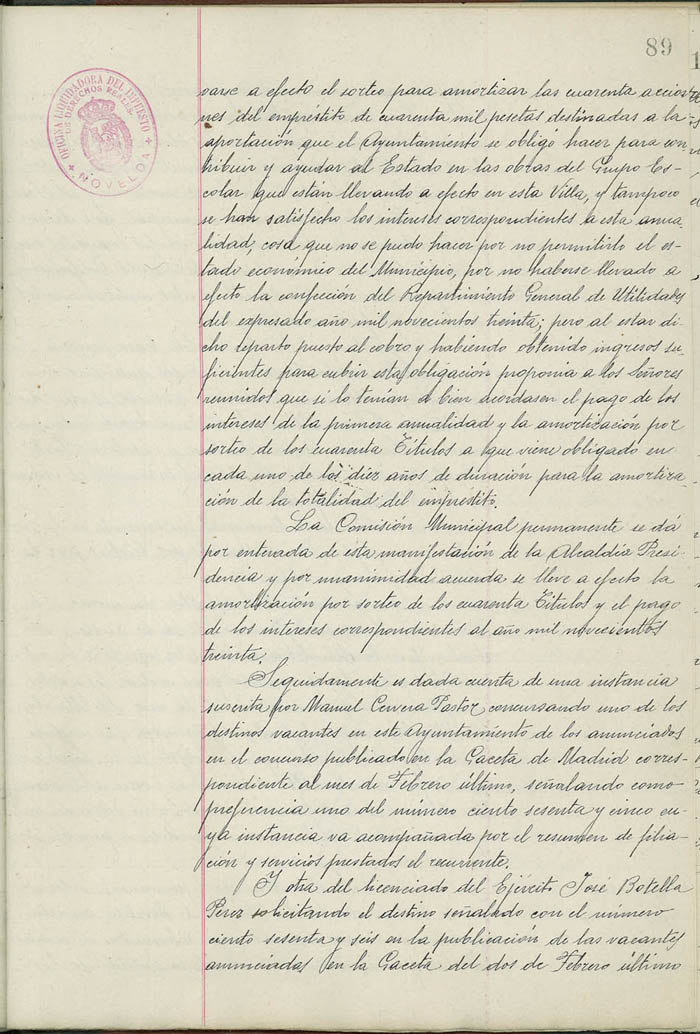 89
OFICINA LIQUIDADORA DEL IMPUESTO
DE DERECHOS REALES
NOVELDA
varse a efecto el sorteo para amortizar las cuarenta accio-
nes del empréstito de cuarenta mil pesetas destinadas a la
aportación que el Ayuntamiento se obligó hacer para con
tribuir y ayudar al Estado en las obras del Grupo Es-
colar que están llevando a efecto en esta Villa, y tampoco
se han satisfecho los intereses correspondientes a esta anua-
lidad, cosa que no se pudo hacer por no permitirlo el es-
tado económico del Municipio, por no haberse llevado a
efecto la confección del Repartimiento General de Utilidades
del expresado año mil novecientos treinta; pero al estar di
cho reparto puesto al cobro y habiendo obtenido ingresos su-
ficientes para cubrir esta obligacion proponia a los Señores
reunidos que si lo tenían a bien acordasen el pago de los
intereses de la primera anualidad y la amortización por
sorteo de los cuarenta Titulos a que viene obligado en
cada uno de los diez años de duración para la amortiza-
ción de la totalidad del empréstito.
La Comisión Municipal permanente se dá
por enterada de esta manifestación de la Alcaldía Presi-
dencia y por unanimidad acuerda se lleve a efecto la
amortización por sorteo de los cuarenta Titulos y el pago
de los intereses correspondientes al año mil novecientos
treinta.
Seguidamente es dada cuenta de una instancia
suscrita por Manuel Cervera Pastor concursando uno de los
destinos vacantes en este Ayuntamiento de los anunciados
en el concurso publicado en la Gaceta de Madrid corres-
pondiente al mes de Febrero último, señalando como
preferencia uno del número ciento sesenta y cinco cu-
ya instancia va acompañada por el resumen de filia-
ción y servicios prestados el recurrente.
Y otra del licenciado del Ejército José Botella
Perez solicitando el destino señalado con el número
ciento sesenta y seis en la publicación de las vacantes
anunciadas en la Gaceta del dos de Febrero último